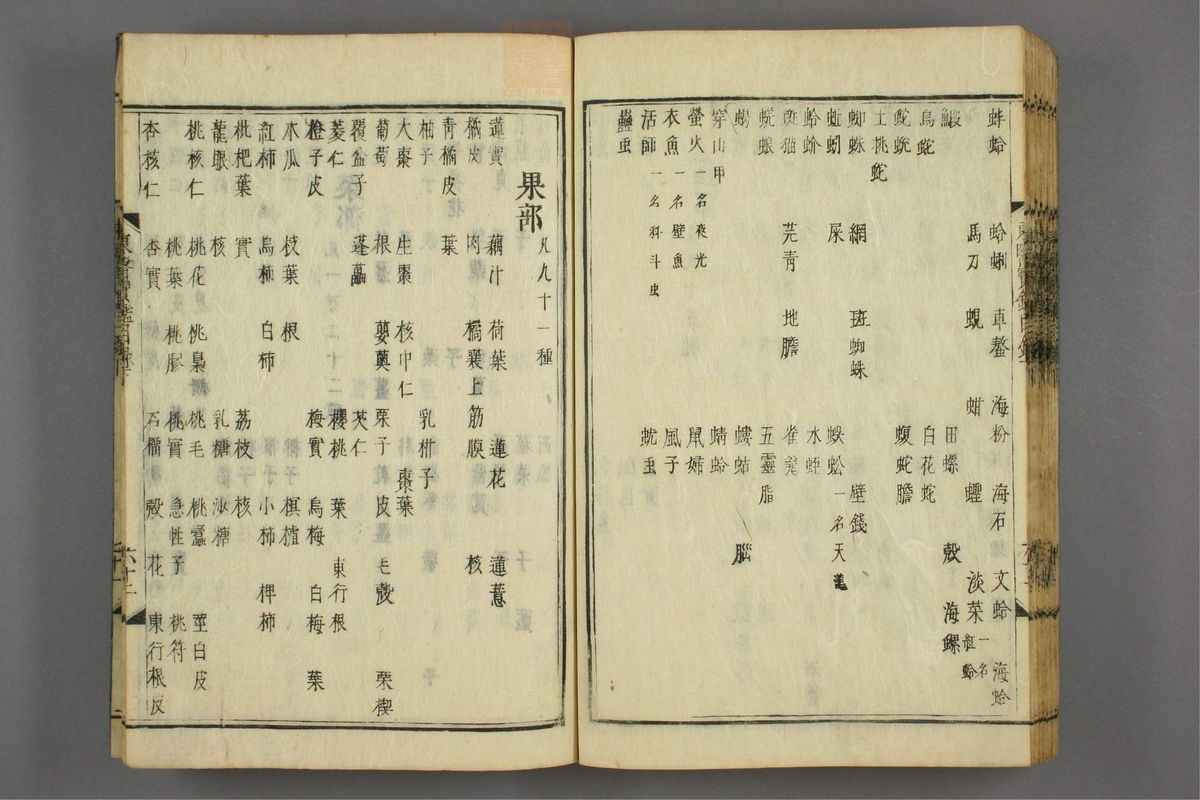 蚌蛤 蛤蜊 車螯 海粉 海石 文蛤 海蛤
馬刀 蜆 蚶 蟶 淡菜一名紅蛤
田螺 殼 海螺
烏蛇 白花蛇
蛇蛻 蝮蛇膽
土桃蛇
蜘蛛 網 斑蜘蛛 壁錢
蚯蚓 屎 蜈蚣一名天龍
蛤蚧 水蛭
斑猫 芫青 地膽 雀甕
蜣蜋 五靈脂
蝎 螻蛄 腦
穿山甲 蜻蛉
螢火一名夜光 鼠婦
衣魚一名壁魚 風子
活師一名科斗虫 蚘虫
蠱虫
果部 凡九十一種
蓮實 藕汁 荷葉 蓮花 蓮薏
橘皮 肉 橘囊上筋膜 核
青橘皮 葉
柚子 乳柑子
大棗 生棗 核中仁 棗葉
葡萄 根 蘡薁 栗子 皮 毛殼 栗楔
覆盆子 蓬藟
菱仁 芡仁
橙子皮 櫻桃 葉 東行根
梅實 烏梅 白梅 葉
木瓜 枝葉 根 榠樝
紅柿 烏柿 白柿 小柿 椑柿
枇杷葉 實 荔枝 核
龍眼 核 乳糖 沙糖
桃核仁 桃花 桃梟 桃毛 桃蠹 莖白皮
桃葉 桃膠 桃實 急性子 桃符
杏核仁 杏實 石榴 殼 花 東行根皮